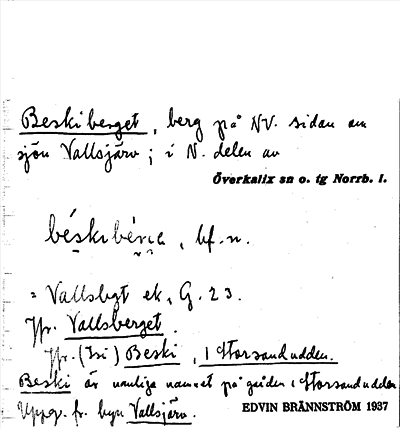 Beskiberget, berg på NV. sidan om
sjön Vallsjärv; i N. delen av
Överkalix sn o. tg Norrb. l.
bf. n.
= Vallsbgt ek, G. 23.
Jfr. Vallsberget.
Jfr. (Isi) Beski, i Storsandudden.
Beski är vanliga namnet på gården i Storsandudden
Uppg. fr. byn Vallsjärv.
EDVIN BRÄNNSTRÖM 1937